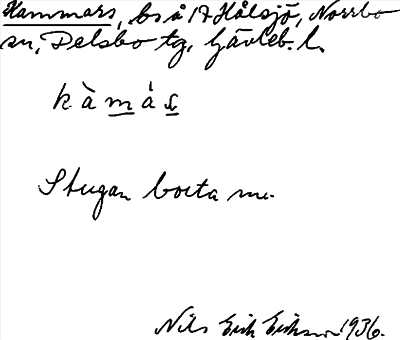 Hammars, bs å 17 Hålsjö, Norrbo
sn, Delsbo tg, Gävleb. l.
kàmás
Stugan borta nu.
Nils Erik Erikson 1936.